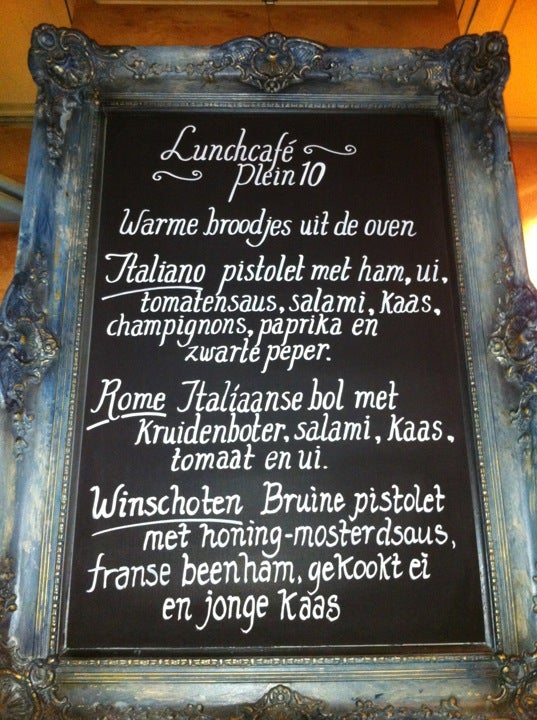 Lunchcafé
Plein 10
Warme broodjes uit de oven
Italiano pistolet met ham, ui,
tomatensaus, salami, kaas,
champignons, paprika en
zwarte peper.
Rome Italiaanse bol met
Kruidenboter, salami, kaas,
tomaat en ui.
Winschoten Bruine pistolet
met honing-mosterdsaus,
franse beenham, gekookt ei
en jonge kaas